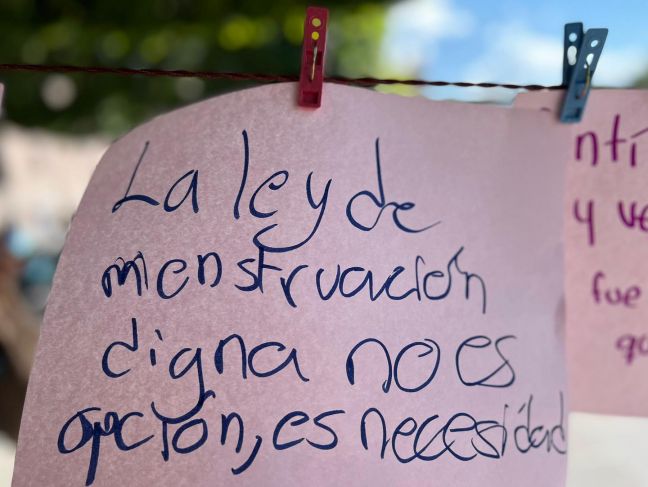 La ley de
menstruación
digna no es
opción, es necesidad
ntí
y ve
fue
qu